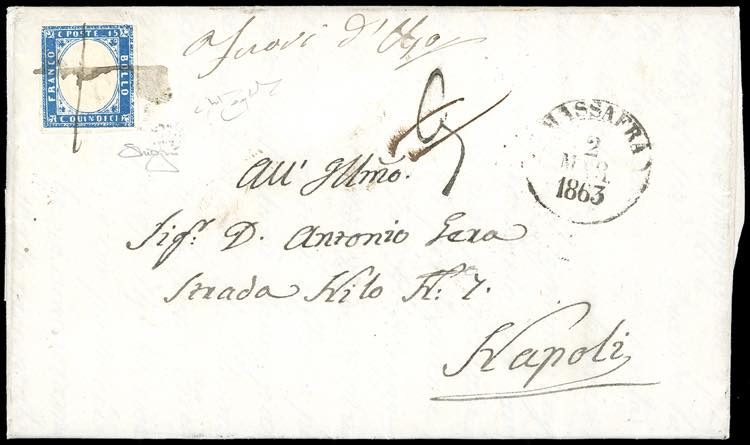 C POSTE 15
FRANCO
BOLLO
C QUINDICI
Fuori d'Uso
MASSAFRA
2
1863
All' Illmo.
Sigr. D. Antonio Cera
Strada Nilo N. 7.
Napoli